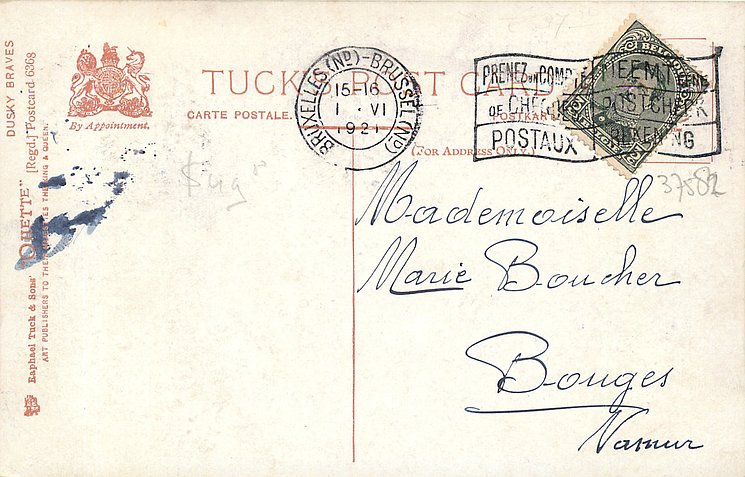 DUSKY BRAVES
By Appointment.
TUCK'S POST CARD
CARTE POSTALE.
(FOR ADDRESS ONLY.)
Raphael Tuck & Sons' "OILETTE" [Regd.] Postcard 6368
ART PUBLISHERS TO THEIR MAJESTIES THE KING & QUEEN.
BRUXELLES (ND)-BRUSSEL (ND)
15-16
1 · VI
1921
PRENEZ UN COMPTE
DE CHEQUES
POSTAUX
NEEMT EENE
POSTCHECK
REKENING
37582
Mademoiselle
Marie Boucher
Bouges
Namur